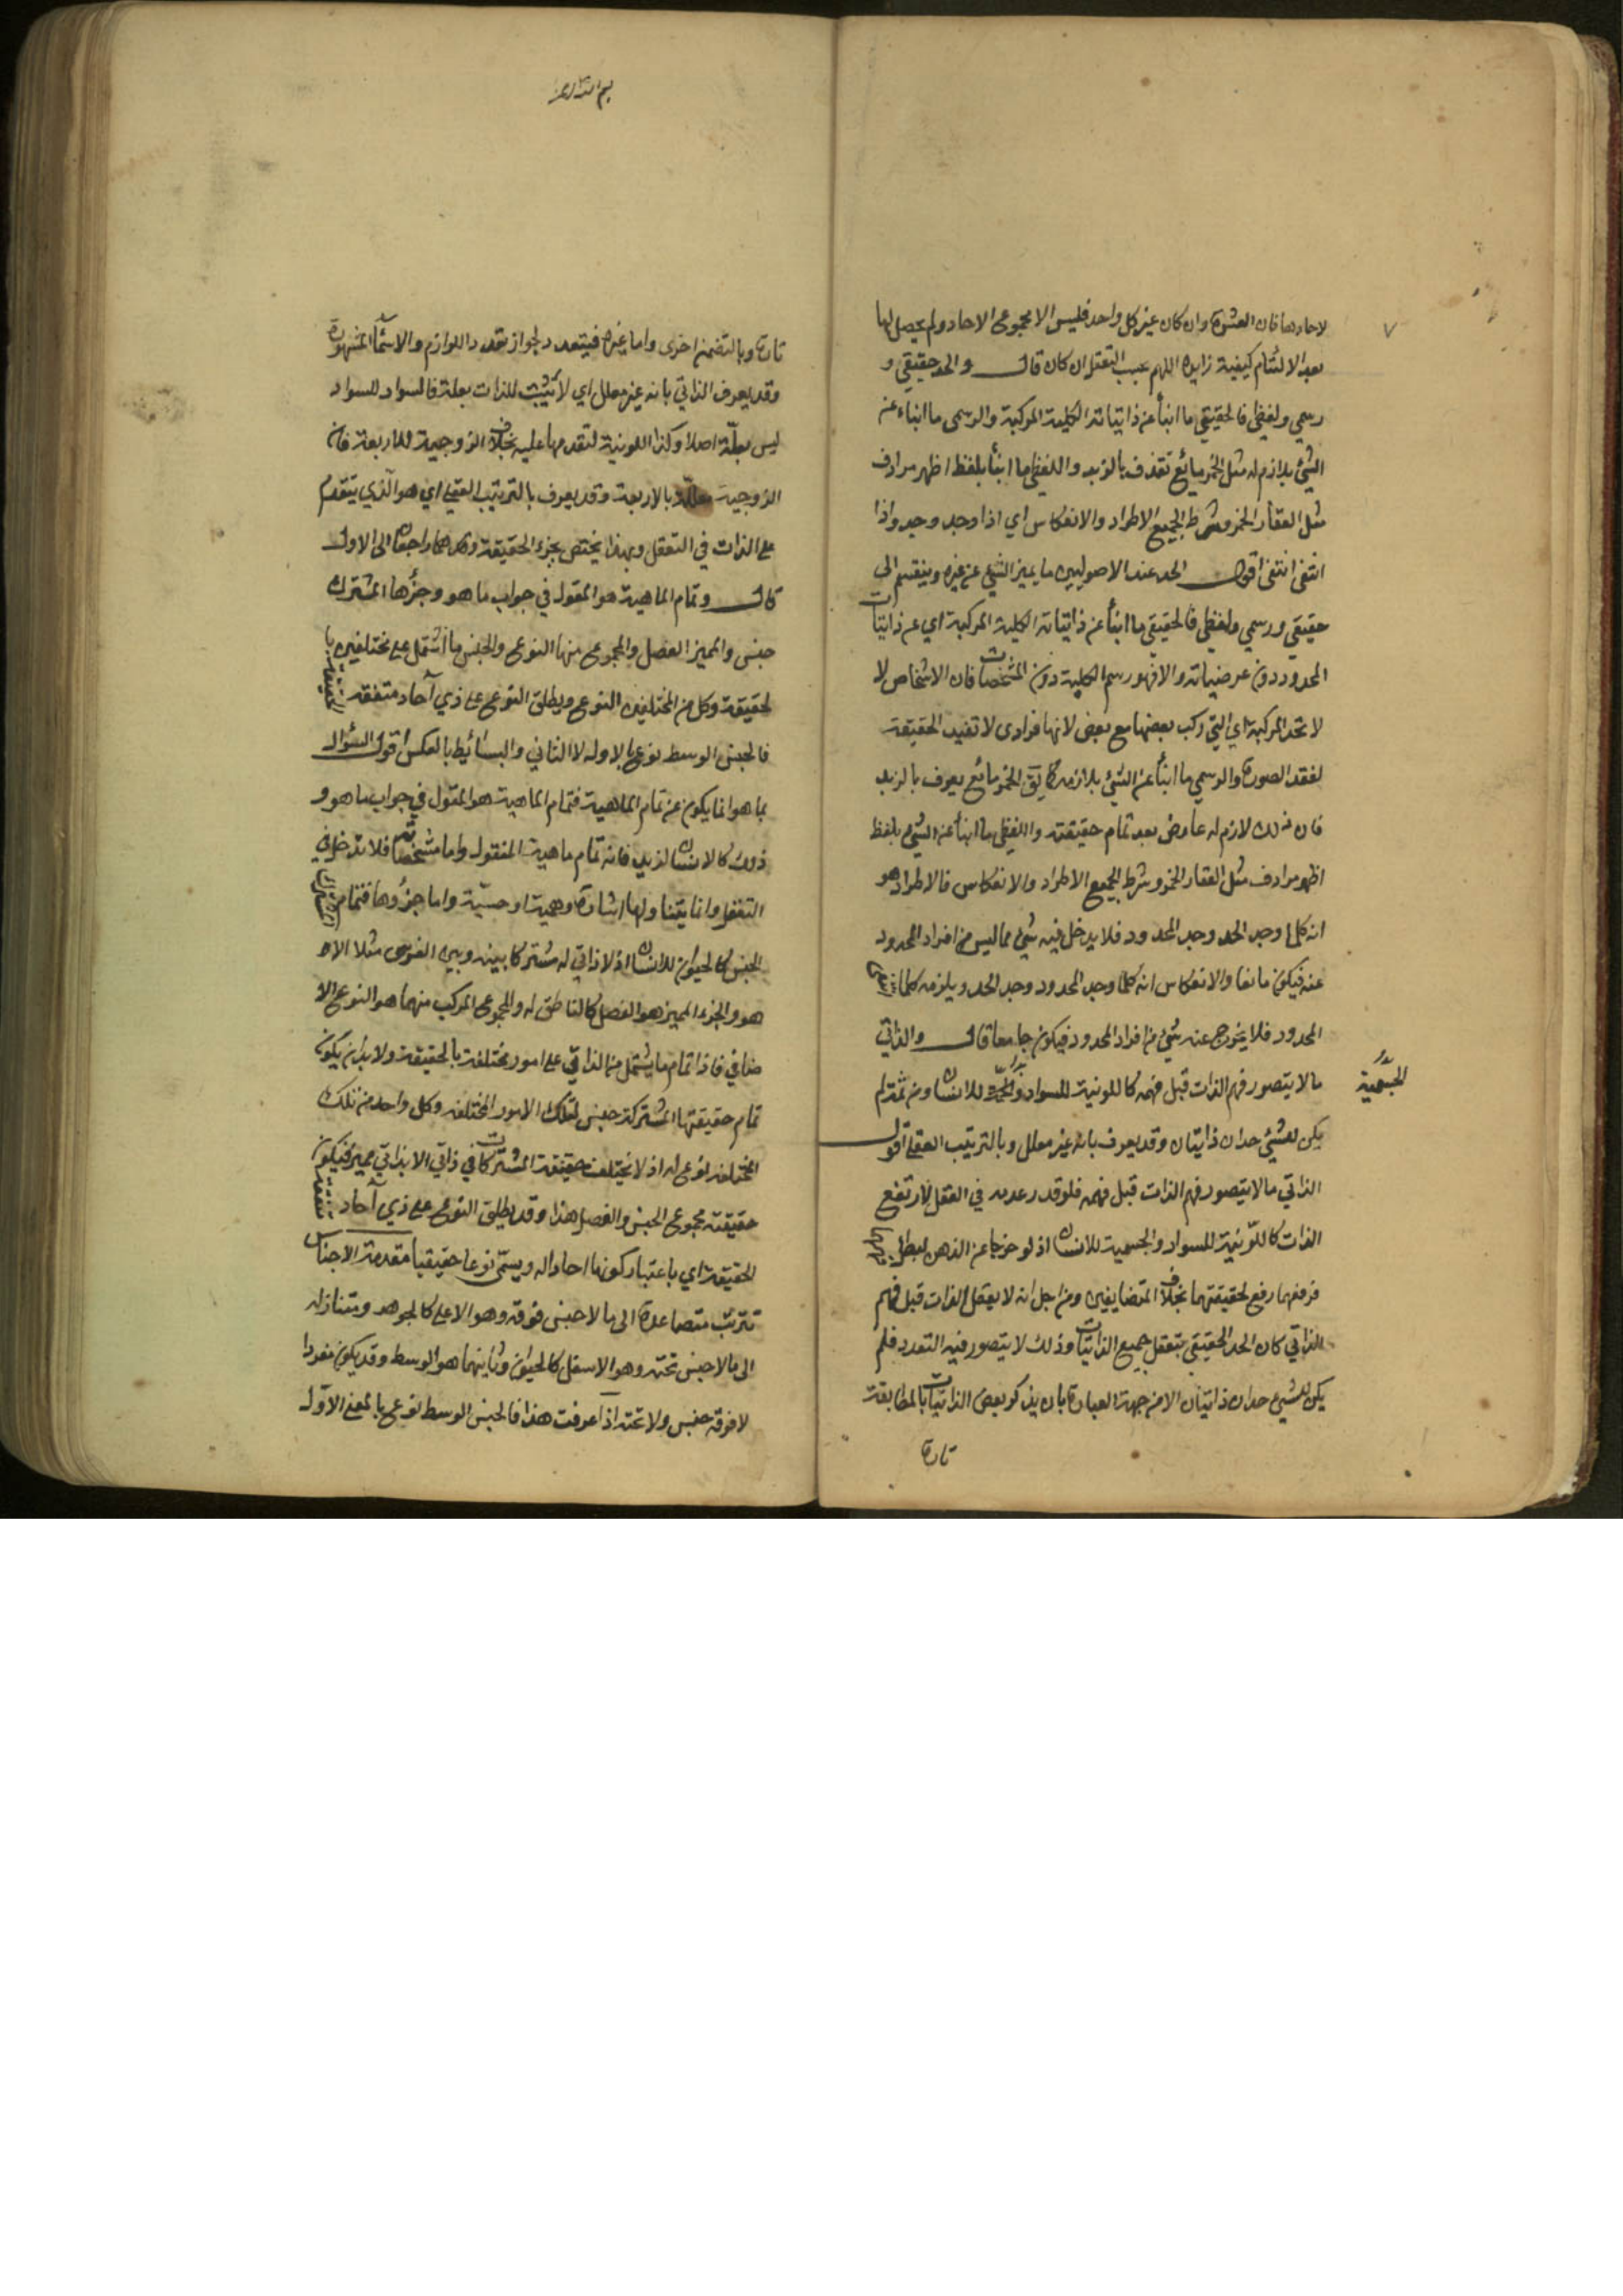 لاحادها فان العشرة وان كان غير كل واحد فليس الا مجموع الاحاد ولم يحصل لها
بعد الالتئام كيفية زايدة اللهم بحسب التعقل ان كان قال والحد حقيقي و
رسمي ولفظي فالحقيقي ما انبأ عن ذاتياته الكلية المركبة والرسمي ما انباء عن
الشئ بلازم له مثل الخمر مائع تقذف بالزبد واللفظي ما انبأ بلفظ اظهر مرادف
مثل العقار الخمر وشرط الجميع الاطراد والانعكاس اي اذا وجد وجد واذا
انتفى انتفى اقول الحد عند الاصوليين ما يميز الشئ عن غيره وينقسم الى
حقيقي ورسمي ولفظي فالحقيقي ما انبأ عن ذاتياته الكلية المركبة اي عن ذاتيات
المحدود دون عرضياته والا فهو رسم الكلية دون المشخصات فان الاشخاص لا
لا تحد المركبة اي التي ركب بعضها مع بعض لانها فرادى لا تفيد الحقيقة
لفقد الصورة والرسمي ما انبأ عن الشئ بلازمه كما يق الخمر مائع يعرف بالزبد
فان ذلك لازم له عارض بعد تمام حقيقته واللفظي ما انبأ عن الشئ بلفظ
اظهر مرادف مثل العقار الخمر وشرط الجميع الاطراد والانعكاس فالاطراد هو
انه كلما وجد الحد وجد المحدود فلا يدخل فيه شئ مما ليس من افراد المحدود
عنه فيكون مانعا والانعكاس انه كلما وجد المحدود وجد الحد ويلزمه كلما
المحدود فلا يخرج عنه شئ من افراد المحدود فيكون جامعا قال والذاتي
ما لا يتصور فهم الذات قبل فهمه كاللونية للسواد و للانسان ومن ثمة لم
الجسمية
يكن لشئ حدان ذاتيان وقد يعرف بانه غير معلل وبالترتيب العقلي اقول
الذاتي ما لا يتصور فهم الذات قبل فهمه فلو قدر عدمه في العقل لارتفع
الذات كاللونية للسواد والجسمية للانسان اذ لو خرجا عن الذهن لبطل
فرفعهما رفع لحقيقتهما بخلاف المتضايفين ومن اجل انه لا يعقل الذات قبل فهم
الذاتي كان الحد الحقيقي بتعقل جميع الذاتيات وذلك لا يتصور فيه التعدد فلم
يكن للشئ حدان ذاتيان الا من جهة العبارة بان يذكر بعض الذاتيات بالمطابقة
تارة
تارة وبالتضمن اخرى واما غيره فيتعدد لجواز تعدد اللوازم والاسماء المشهورة
وقد يعرف الذاتي بانه غير معلل اي لا يثبت للذات بعلة فالسواد للسواد
ليس بعلة اصلا وكذا اللونية لتقدمها عليه بخلاف الزوجية للاربعة فان
الزوجية معللة بالاربعة وقد يعرف بالترتيب العقلي اي هو الذي يتقدم
على الذات في التعقل وبهذا يختص بجزء الحقيقة وكلاهما راجعان الى الاول
قال وتمام الماهية هو المقول في جواب ما هو وجزؤها المشترك
جنس والمميز الفصل والمجموع منها النوع والجنس ما اشتمل على مختلفين با
لحقيقة وكل من المختلفين النوع ويطلق النوع على ذي آحاد متفقة الحقيقة
فالجنس الوسط نوع بالاول لا الثاني والبسائط بالعكس اقول السؤال
بما هو انما يكون عن تمام الماهية فتمام الماهية هو المقول في جواب ما هو و
ذلك كالانسان لزيد فانه تمام ماهيته المنقول واما مشخصاته فلا تدخل في
التعقل وانما يتناولها اشارة وهمية او حسية واما جزؤها فتمام
الجنس كالحيوان للانسان اذ لا ذاتي له مشتركا بينه وبين الفرس مثلا الا
هو والجزء المميز هو الفصل كالناطق له والمجموع المركب منهما هو النوع الا
ضافي فاذا تمام ما يشتمل من الذاتي على امور مختلفة بالحقيقة ولا بد ان يكون
تمام حقيقتها المشتركة جنس لتلك الامور المختلفة وكل واحد من تلك
المختلفة نوع له اذ لا يختلف حقيقة المشتركات في ذاتي الا بذاتي مميز فيكون
حقيقته مجموع الجنس والفصل هذا وقد يطلق النوع على ذي آحاد متفقة
الحقيقة اي باعتبار كونها احادا له ويسمى نوعا حقيقيا مقدمة الاجناس
تترتب متصاعدة الى ما لا جنس فوقه وهو الاعلى كالجوهر ومتنازلة
الى ما لا جنس تحته وهو الاسفل كالحيوان وما بينهما هو الوسط وقد يكون مفردا
لا فوقه جنس ولا تحته اذا عرفت هذا فالجنس الوسط نوع بالمعنى الاول